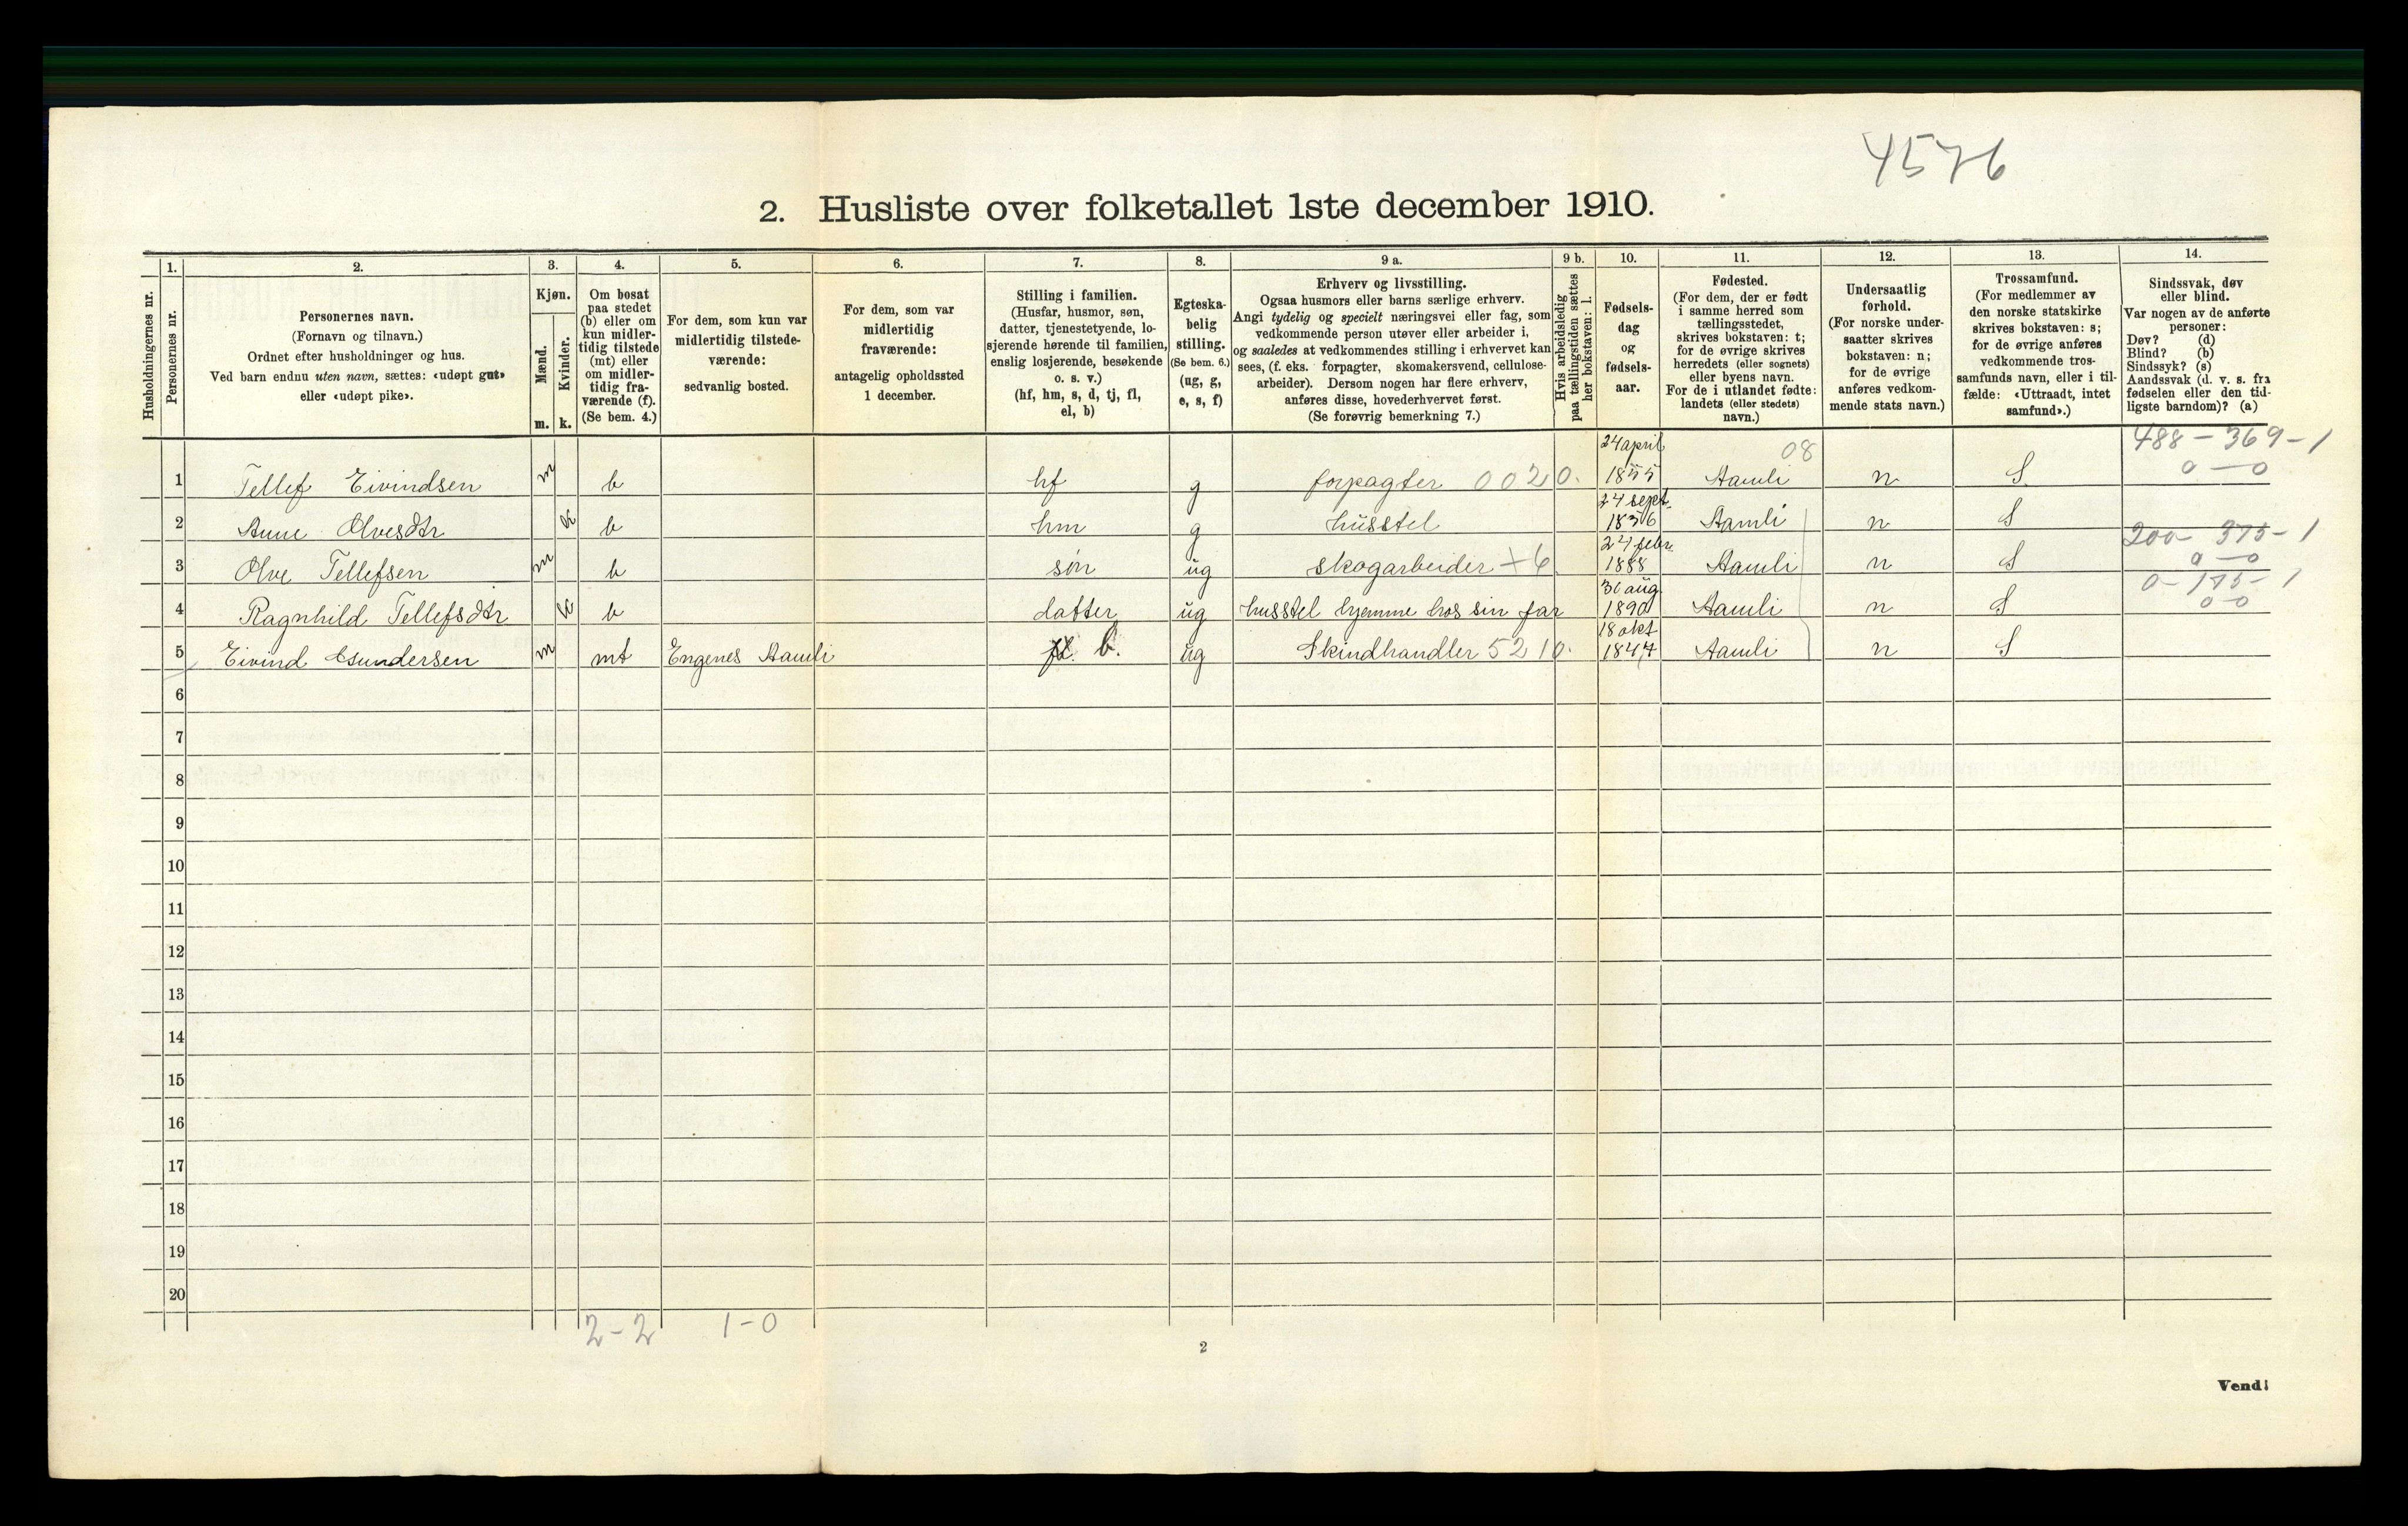 4576
2. Husliste over folketallet 1ste december 1910.
Husholdningernes nr.
1.
Personernes nr.
2.
Personernes navn.
(Fornavn og tilnavn.)
Ordnet efter husholdninger og hus.
Ved barn endnu uten navn, sættes: «udøpt gut»
eller «udøpt pike».
3.
Kjøn.
Mænd.
Kvinder.
m. k.
4.
Om bosat
paa stedet
(b) eller om
kun midler-
tidig tilstede
(mt) eller
om midler-
tidig fra-
værende (f).
(Se bem. 4.)
5.
For dem, som kun var
midlertidig tilstede-
værende:
sedvanlig bosted.
6.
For dem, som var
midlertidig
fraværende:
antagelig opholdssted
1 december.
7.
Stilling i familien.
(Husfar, husmor, søn,
datter, tjenestetyende, lo-
sjerende hørende til familien,
enslig losjerende, besøkende
o. s. v.)
(hf, hm, s, d, tj, fl,
el, b)
8.
Egteska-
belig
stilling.
(Se bem. 6.)
(ug, g,
e, s, f)
9 a.
Erhverv og livsstilling.
Ogsaa husmors eller barns særlige erhverv.
Angi tydelig og specielt næringsvei eller fag, som
vedkommende person utøver eller arbeider i,
og saaledes at vedkommendes stilling i erhvervet kan
sees, (f. eks. forpagter, skomakersvend, cellulose-
arbeider). Dersom nogen har flere erhverv,
anføres disse, hovederhvervet først.
(Se forøvrig bemerkning 7.)
9 b.
Hvis arbeidsledig
paa tællingstiden sættes
her bokstaven: l.
10.
Fødsels-
dag
og
fødsels-
aar.
11.
Fødested.
(For dem, der er født
i samme herred som
tællingsstedet,
skrives bokstaven: t;
for de øvrige skrives
herredets (eller sognets)
eller byens navn.
For de i utlandet fødte:
landets (eller stedets)
navn.)
12.
Undersaatlig
forhold.
(For norske under-
saatter skrives
bokstaven: n;
for de øvrige
anføres vedkom-
mende stats navn.)
13.
Trossamfund.
(For medlemmer av
den norske statskirke
skrives bokstaven: s;
for de øvrige anføres
vedkommende tros-
samfunds navn, eller i til-
fælde: «Uttraadt, intet
samfund».)
14.
Sindssvak, døv
eller blind.
Var nogen av de anførte
personer:
Døv? (d)
Blind? (b)
Sindssyk? (s)
Aandssvak (d. v. s. fra
fødselen eller den tid-
ligste barndom)? (a)
1 Tellef Eivindsen m b hf g forpagter 0020. 24 april 1855 Aamli 08 n S 488-369-1 0-0
2 Anne Olvesdtr k b hm g husstel 24 sept. 1856 Aamli n S
3 Olve Tellefsen m b søn ug skogarbeider +6 24 febr. 1888 Aamli n S 200-375-1 0-0
4 Ragnhild Tellefsdtr k b datter ug husstel hjemme hos sin far 30 aug. 1890 Aamli n S 0-175-1 0-0
5 Eivind Gundersen m mt Engenes Aamli b. ug Skindhandler 5210. 18 okt 1847 Aamli n S
6
7
8
9
10
11
12
13
14
15
16
17
18
19
20
2-2 1-0
2
Vend!